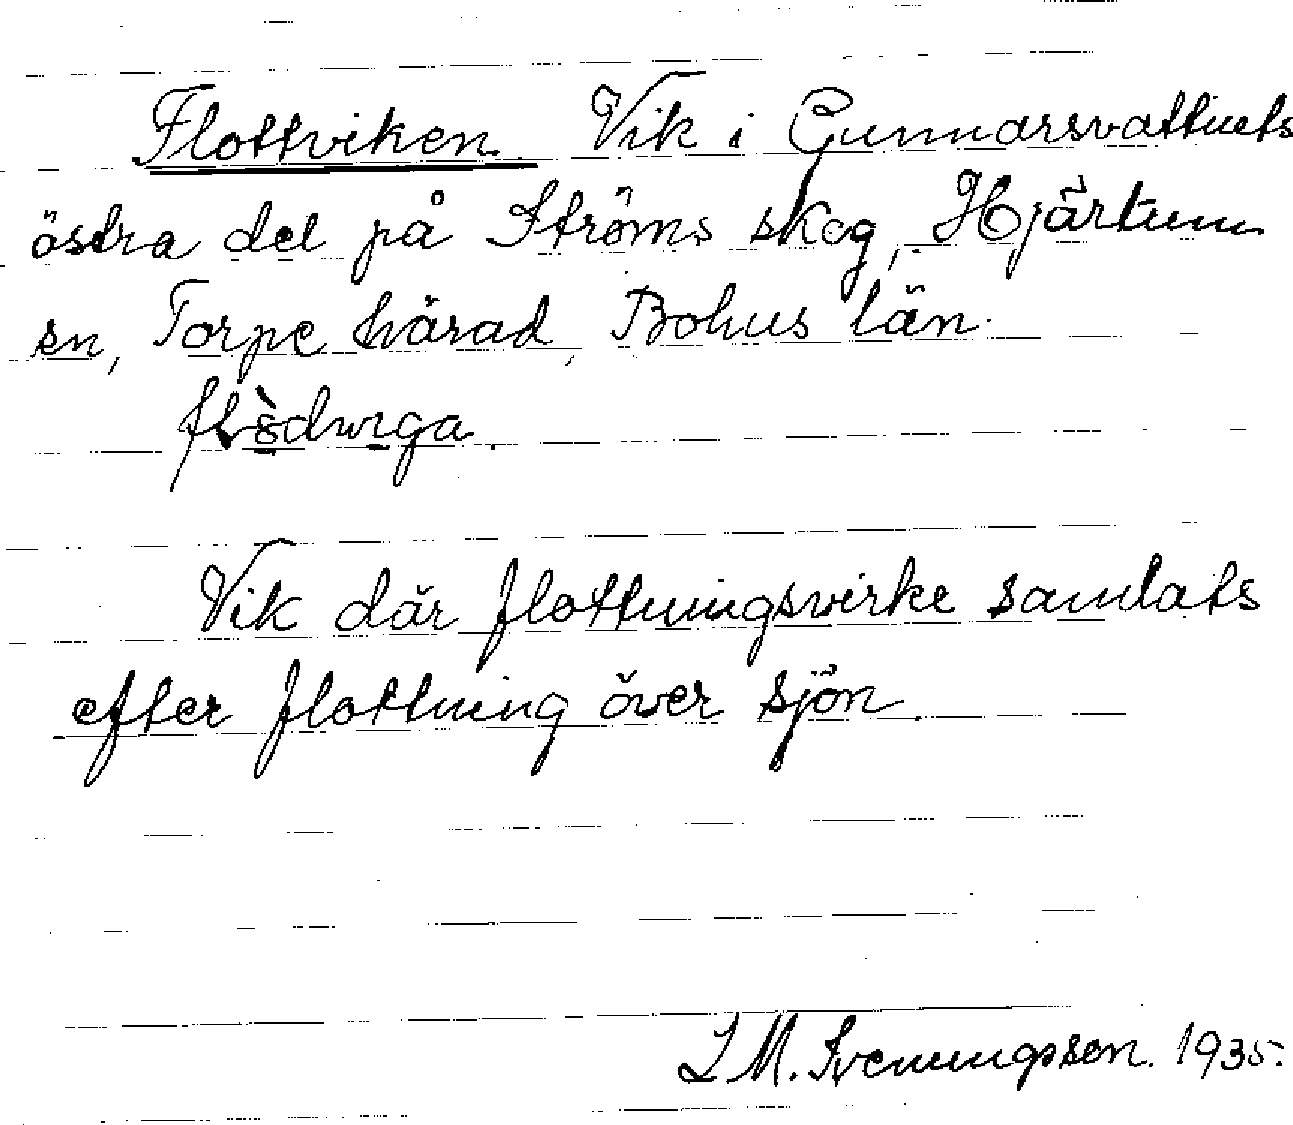 Flottviken. Vik i Gunnarsvattnets
östra del på Ströms skog, Hjärtum
sn, Torpe härad, Bohus län.
Vik där flottningsvirke samlats
efter flottning över sjön.
L M. Svenungsson. 1935.